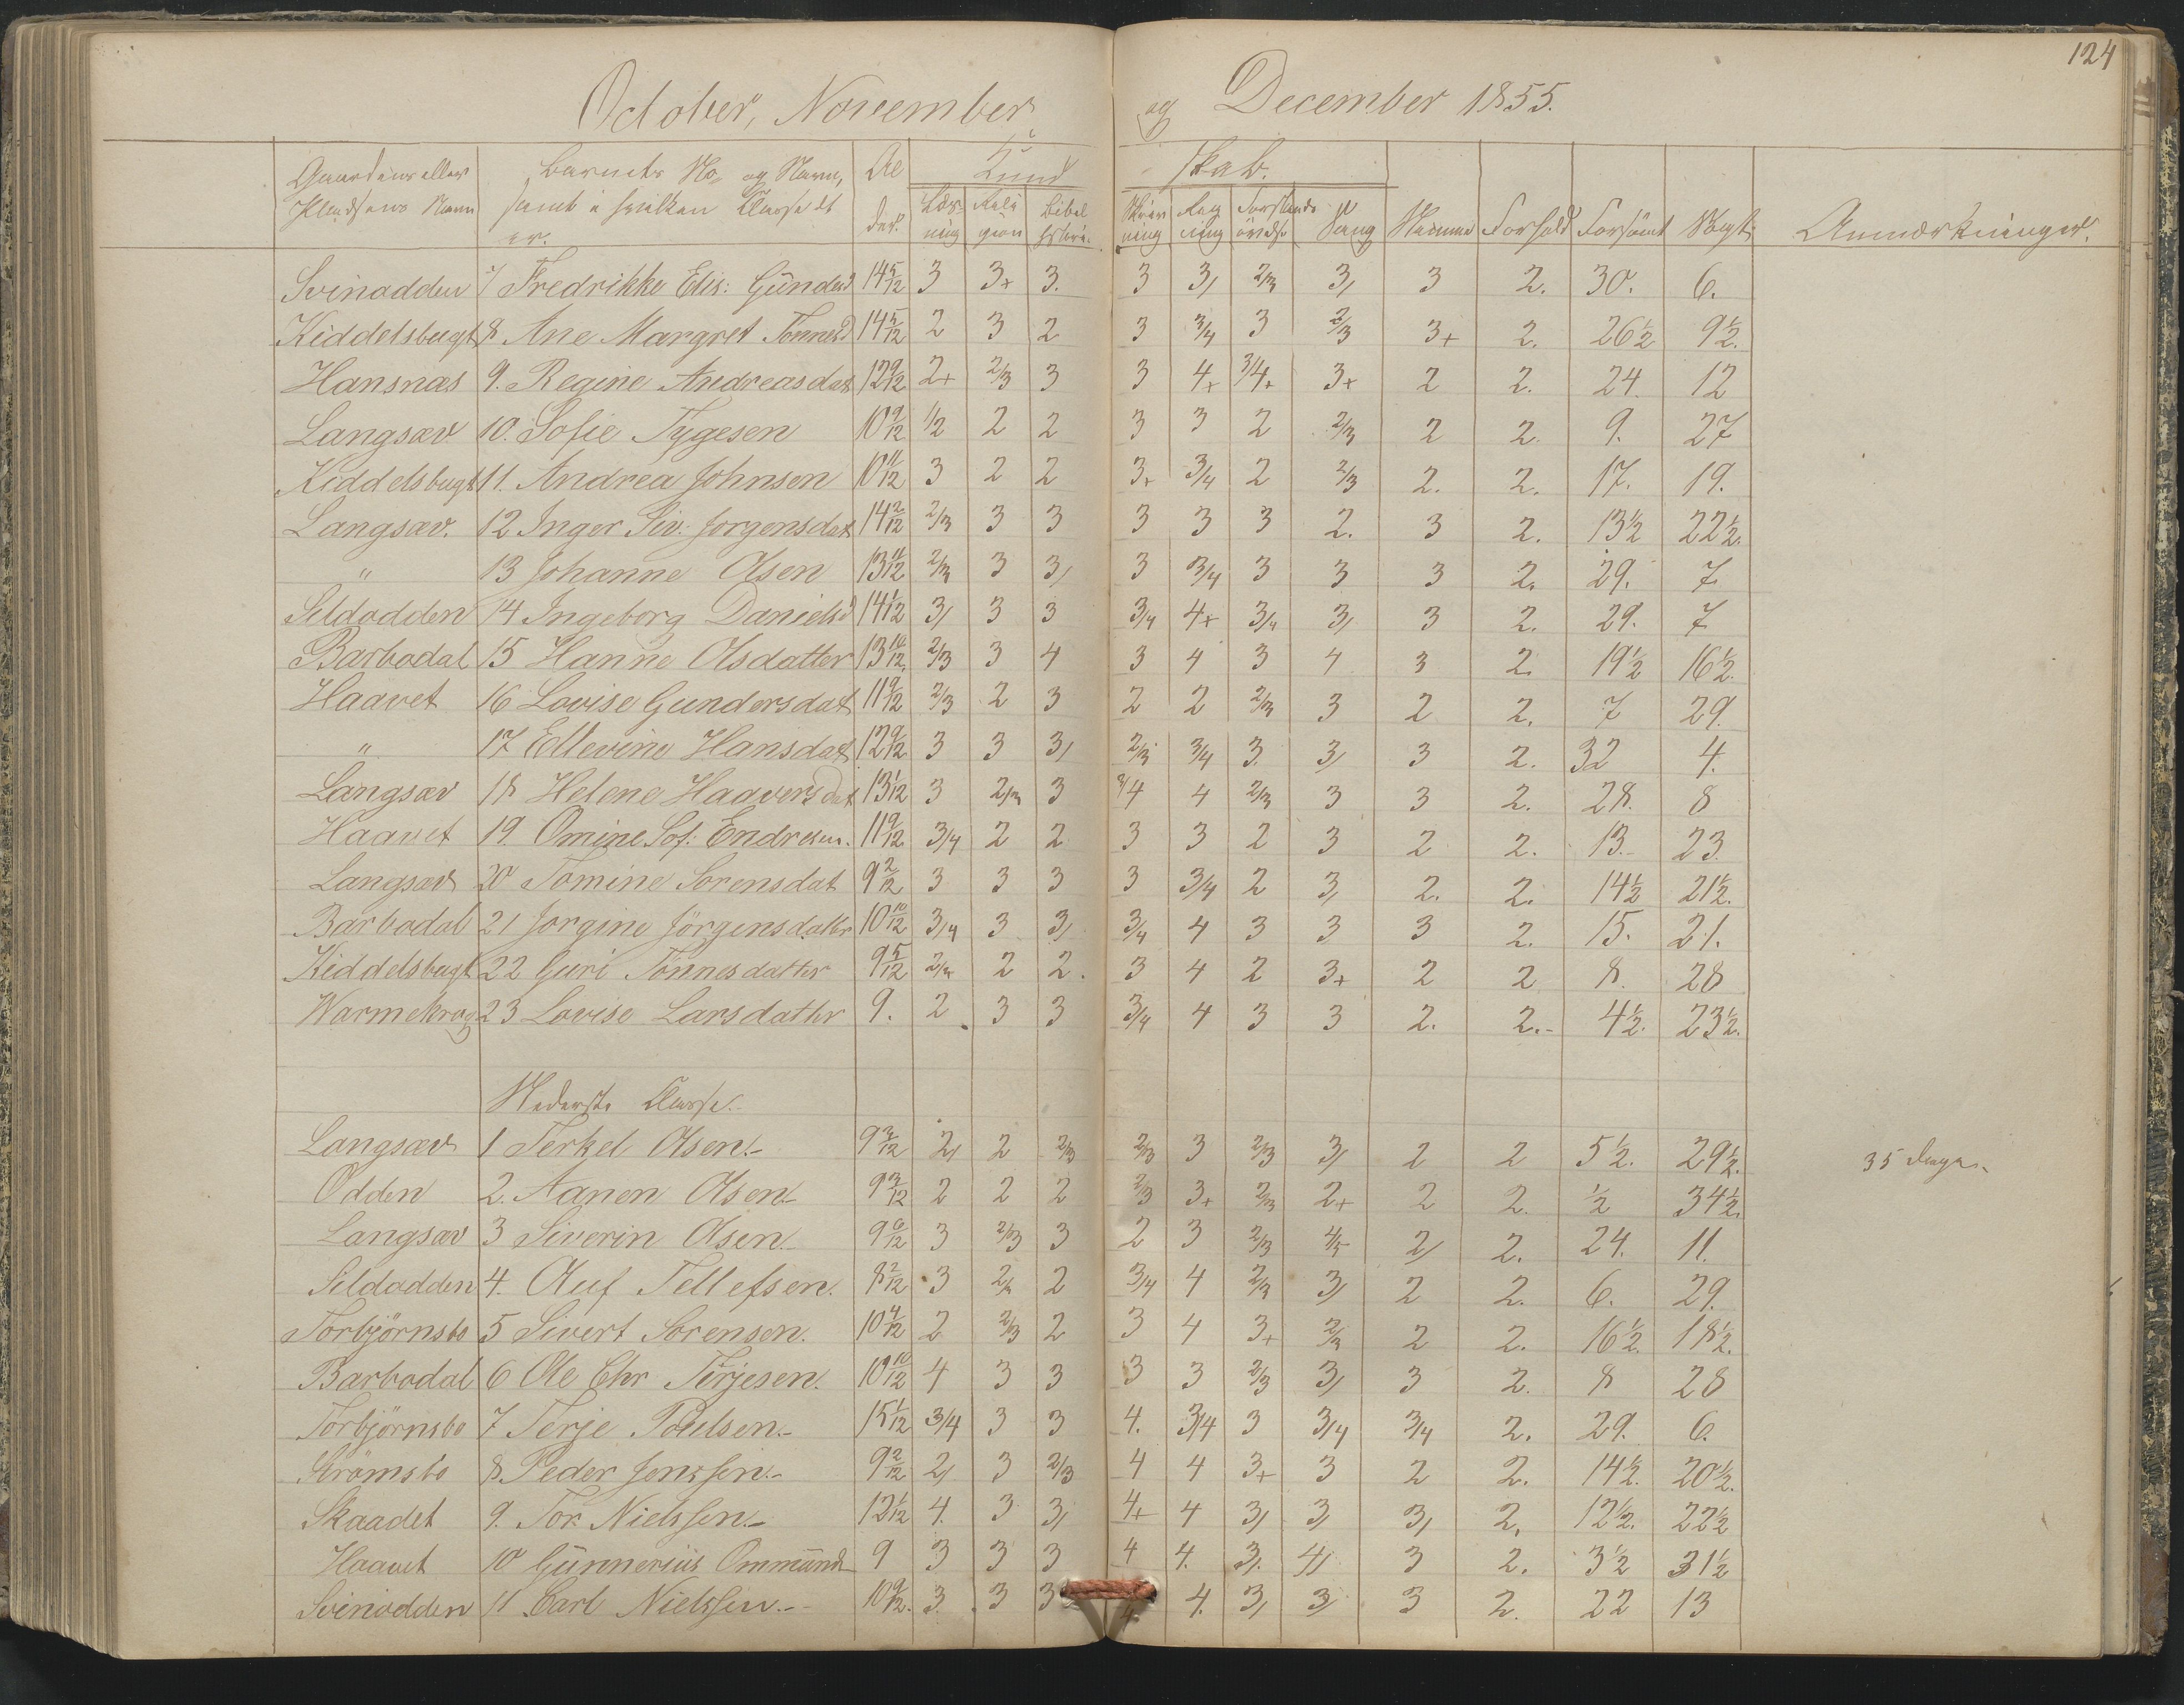 124
October, November og December 1855.
Gaardens eller Pladsens Navn | Barnets No og Navn, samt i hvilken Classe det er. | Al der. | Kund skab. | Nemme | Forhold | Forsömt | Sögt | Anmærkninger.
Læs ning | Reli gion | Bibel historie | Skriv ning | Reg ning | Forstands övelse | Sang
Svinodden 7 Fredrikke Elis: Gundersd 14 5/12 3 3+ 3. 3 3/ 2/3 3/ 3 2. 30. 6.
Kiddelsbugt 8 Ane Margret Tonnesd 14 5/12 2 3 2 3 3/4 3 2/3 3+ 2. 26½ 9½.
Hansnas 9. Regine Andreasdat 12 9/12 2+ 2/3 3 3 4+ 3/4+ 3+ 2 2. 24. 12
Langsæv 10. Sofie Tygesen 10 9/12 1/2 2 2 3 3 2 2/3 2 2. 9. 27
Kiddelsbugt 11. Andrea Johnsen 10 11/12 3 2 2 3+ 3/4 2 2/3 2. 2. 17. 19.
Langsæv. 12 Inger Siv: Jorgensdat 14 2/12 2/3 3 3 3 3 3 2. 3 2. 13½ 22½.
" 13 Johanne Olsen 13 11/12 2/3 3 3/ 3 3/4 3 3 3 2. 29. 7
Sildodden 14 Ingeborg Danielsd 14 1/12 3/ 3 3 3/4 4+ 3/4 3/ 3 2. 29. 7
Barbodal 15 Hanne Olsdatter 13 10/12 2/3 3 4 3 4 3 4 3 2. 19½ 16½.
Haavet 16 Lovise Gundersdat 11 9/12 2/3 2 3 2 2 2/3 3 2 2. 7 29.
" 17 Ellevine Hansdat 12 9/12 3 3 3/ 2/3 3/4 3. 3/ 3 2. 32 4.
Langsæv 18 Helene Haaversdat 13 1/12 3 2/3 3 3/4 4 2/3 3 3 2. 28. 8
Haavet 19. Omine Sof: Endresen. 11 9/12 3/4 2 2 3 3 2 3 2 2. 13. 23.
Langsæv 20 Tomine Sorensdat 9 2/12 3 3 3 3 3/4 2 3/ 2. 2. 14½ 21½.
Barbodal 21 Jorgine Jörgensdatter 10 10/12 3/4 3 3/ 3/4 4 3 3 3 2. 15. 21.
Kiddelsbugt 22 Guri Tönnesdatter 9 5/12 2/3 2 2. 3 4 2 3+ 2 2 8. 28
Warmekrog 23 Lovise Larsdatter 9. 2 3 3 3/4 4 3 3 2. 2.- 4½. 23½.
Nederste Classe.
Langsæv 1 Terkel Olsen.- 9 3/12 2/ 2 2/3 2/3 3 2/3 3/ 2 2 5½. 29½. 35 Dage.
Odden 2. Aanen Olsen.- 9 3/12 2 2 2 2/3 3+ 2/3 2+ 2 2. ½ 34½.
Langsæv 3 Siverin Olsen. 9 6/12 3 2/3 3 2 3 2/3 4/5 2/ 2. 24. 11.
Sildodden 4. Oluf Tellefsen. 8 2/12 3 2/3 2 3/4 4 2/3 3/ 2 2. 6. 29.
Torbjörnsbo 5 Sivert Sorensen. 10 4/12 2 2/3 2 3 4 3+ 2/3 2 2. 16½. 18½.
Barbodal 6 Ole Chr Terjesen. 10 10/12 4 3 3 3 3 2/3 3/ 3 2. 8 28
Torbjörnsbo 7 Terje Poulsen.- 15 1/12 3/4 3 3 4. 3/4 3 3/4 3/4 2. 29. 6.
Strömsbo 8. Peder Jenssen.- 9 2/12 2/ 3 2/3 4 4 3+ 3 2 2. 14½. 20½.
Skaadet 9. Tor Nielssen.- 12 1/12 4. 3 3/ 4+ 4 3/ 3/ 3/ 2. 12½. 22½
Haavet 10 Gunnerius Ommunds 9 3 3 3 4 4. 3. 4/ 3 2. 3½ 31½
Svinodden 11 Carl Nielssen.- 10 9/12. 3. 3 3 4. 4. 3/ 3/ 3 2. 22 13